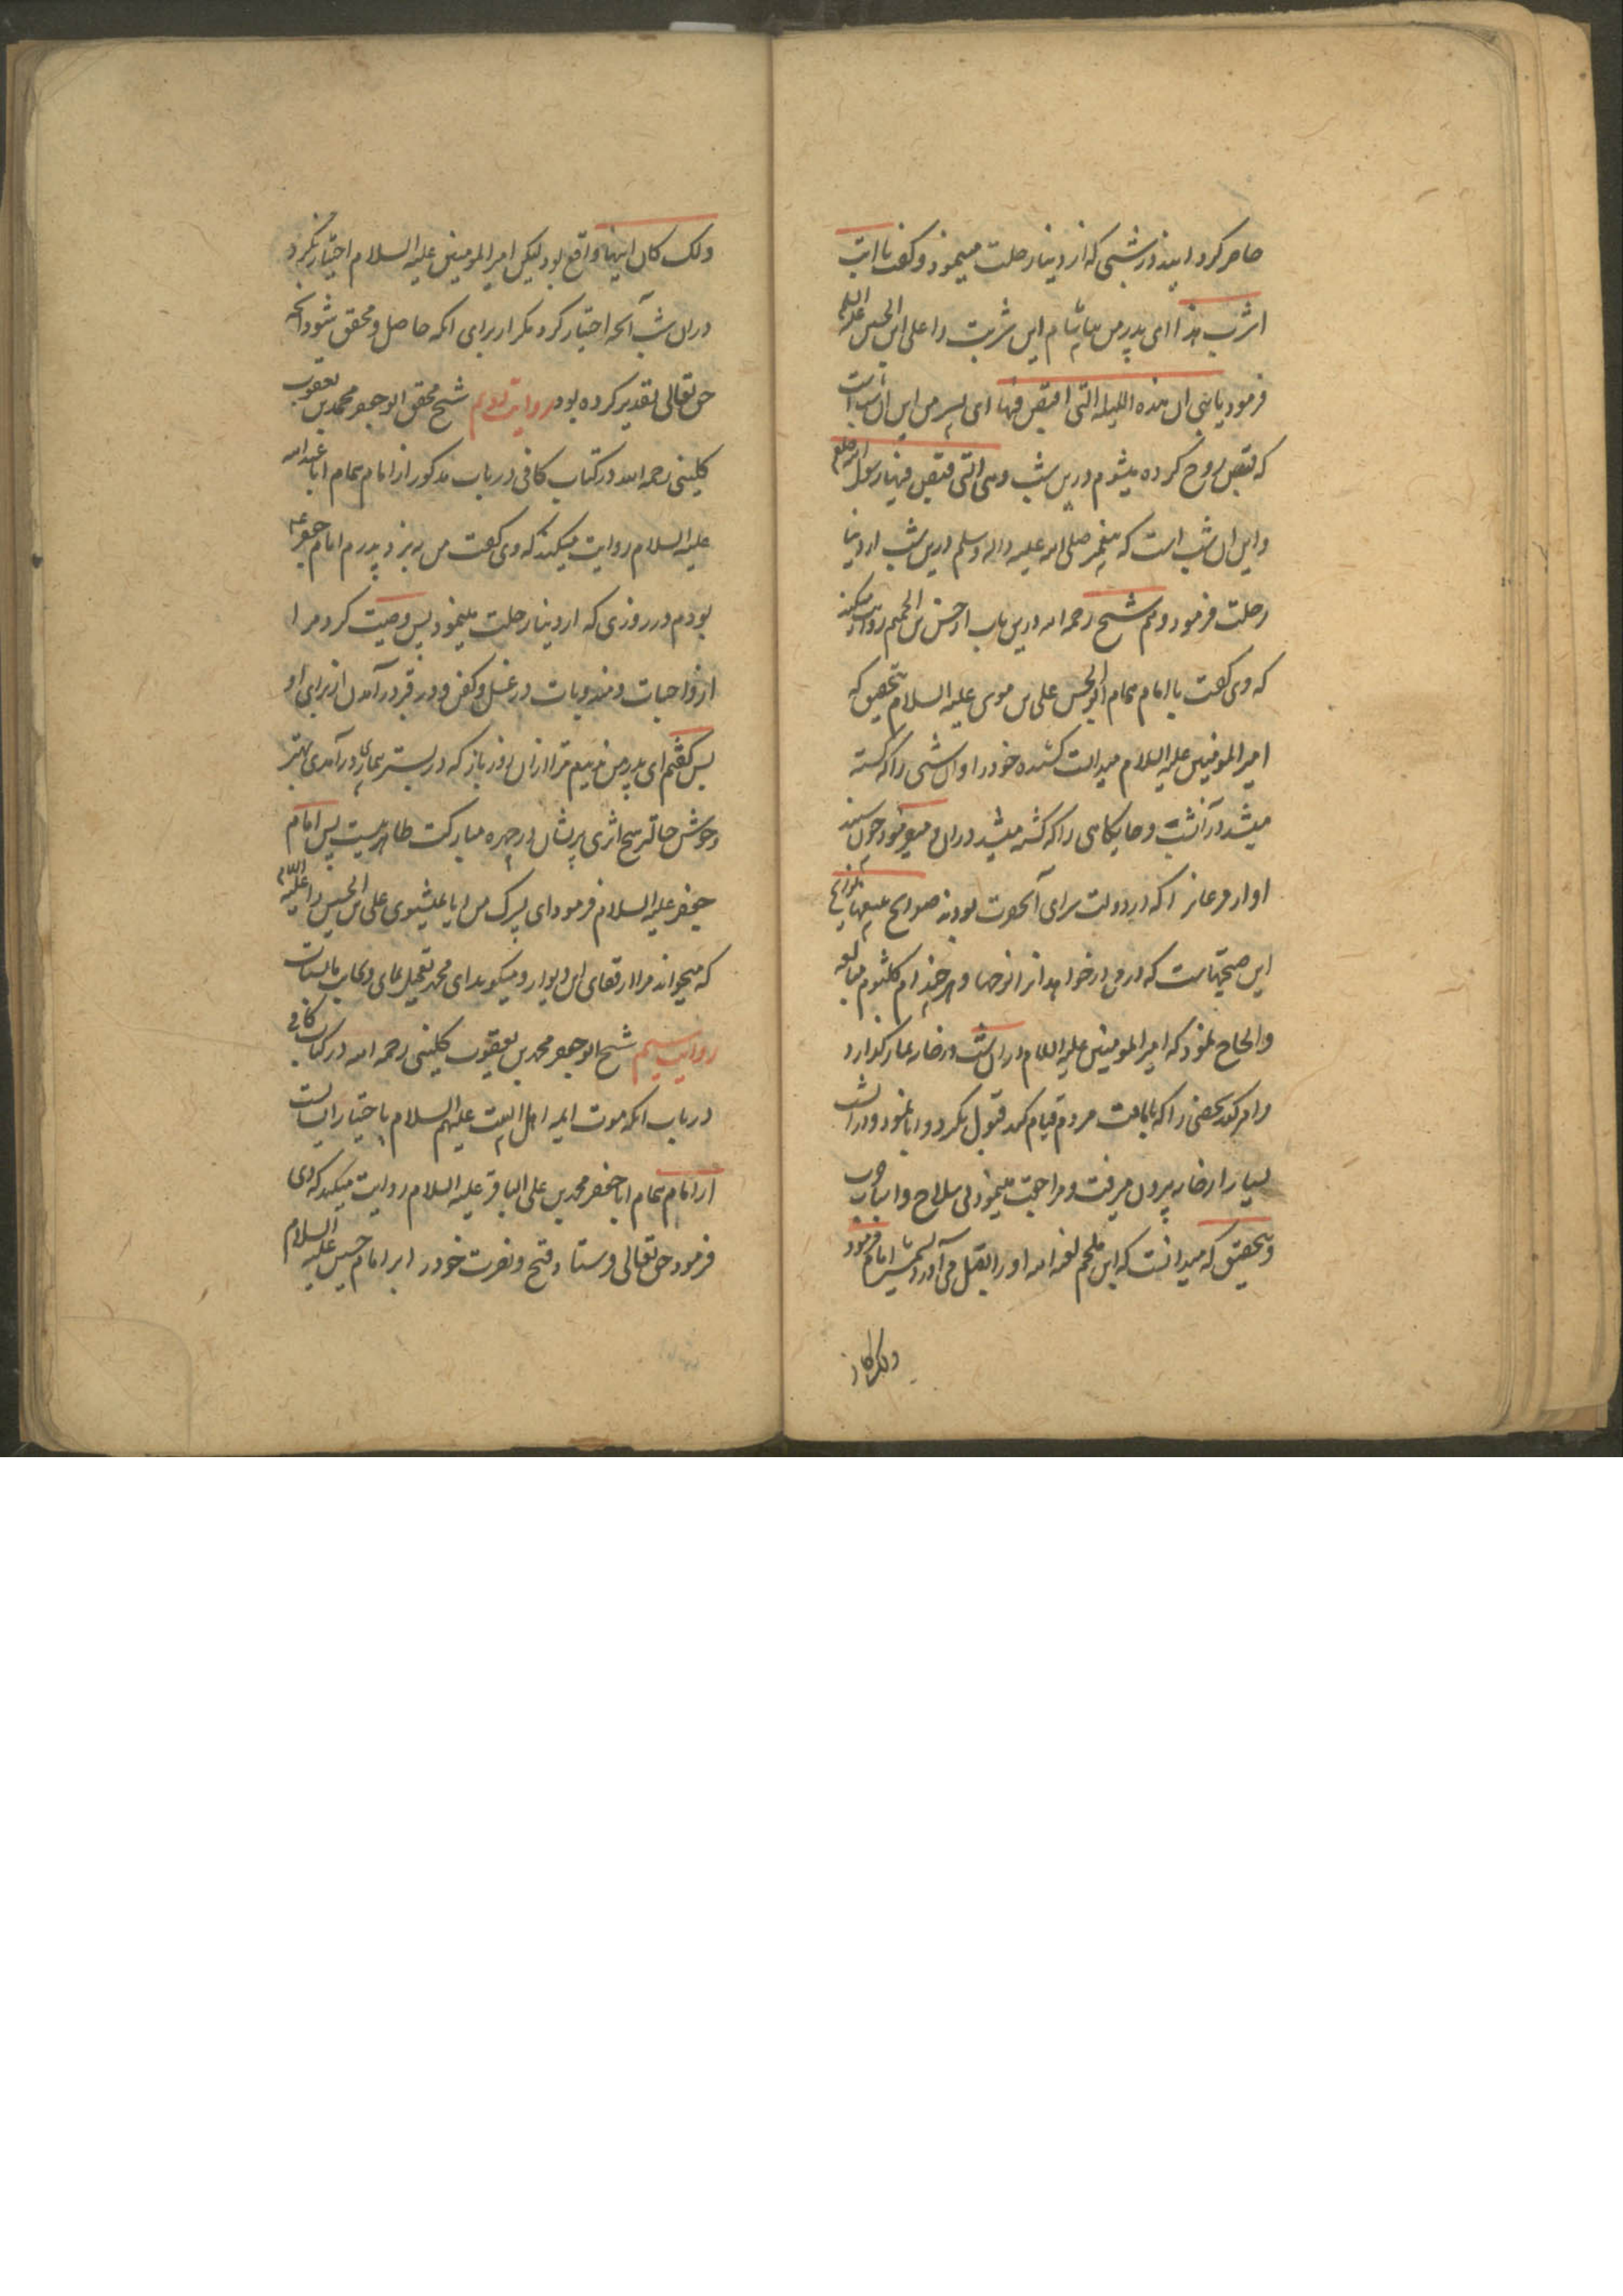 حاضر کردانید در شبی که از دنیا رحلت مینمود و کفت یا ابت
اشرب هذا ای پدر من بیاشام این شربت را علی ابن الحسین علیه السلام
فرمود یا بنی ان هذه اللیلة التی اقبض فیها ای پسر من این ان شب است
که قبض روح کرده میشوم درین شب و هی التی قبض فیها رسول الله صلعم
و این ان شب است که پیغمبر صلی الله علیه واله وسلم درین شب از دنیا
رحلت فرمود و هم شیخ رحمه الله درین باب از حسن بن الجهم روایت میکند
که وی کفت با امام همام ابو الحسن علی بن موسی علیه السلام بتحقیق که
امیر المومنین علیه السلام میدانست کشنده خود را و ان شبی را که کشته
میشد در آنشب و جایکاهی را که کشته میشد در ان و میفرمود چون شنید
اواز مرغانرا که در دولت سرای آنحضرت بودند صوایح تتبعها نوایح
این صیحهاست که در پی در خواهد انرا نوحها و هر چند ام کلثوم مبالغه
و الحاح نمود که امیر المومنین علیه السلام در ان شب در خانه نماز کذارد
و امر کند شخصی را که بامامت مردم قیام کند قبول نکرد و ابا نمود و در انشب
بسیار از خانه بیرون میرفت و مراجعت مینمود بی سلاح و اسباب حرب
و بتحقیق که میدانست که ابن ملجم لعنه الله او را بقتل می آورد بشمشیر امام فرمود
ولک کان
ذلک کان اینها واقع بود لیکن امیر المومنین علیه السلام اختیار نکرد
دران شب آنچه اختیار کرد مکر از برای انکه حاصل و محقق شود انچه
حق تعالی تقدیر کرده بود روایت دویم شیخ محقق ابو جعفر محمد بن یعقوب
کلینی رحمه الله در کتاب کافی در باب مذکور از امام همام ابا عبد الله
علیه السلام روایت میکند که وی کفت من به نزد پدرم امام جعفر ع
بودم در روزی که از دنیا رحلت مینمود پس وصیت کرد مرا
از واجبات و مندوبات در غسل و کفن و در قبر در آمدن از برای او
پس کفتم ای پدر من ندیدم ترا از ان روز باز که در بستر بیماری در آمدی بهتر
و خوش حالتر هیچ اثری پریشان در چهره مبارکت ظاهر نیست پس امام
جعفر علیه السلام فرمود ای پسرک من ایا نمیشنوی علی بن الحسین را علیه السلام
که میخواند مرا از قفای این دیوار و میکوید ای محمد تعجیل نمای
روایت سیم شیخ ابو جعفر محمد بن یعقوب کلینی رحمه الله در کتاب کافی
در باب انکه موت ایمه اهل البیت علیهم السلام باختیار ایشانست
از امام همام ابا جعفر محمد بن علی الباقر علیه السلام روایت میکند که وی
فرمود حق تعالی فرستاد فتح و نصرت خود را بر امام حسین علیه السلام